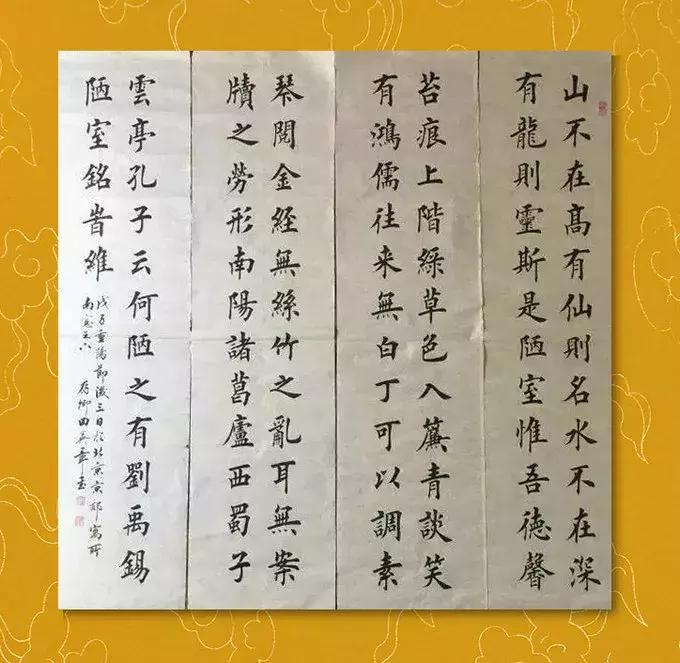 山不在髙有仙則名水不在深
有龍則靈斯是陋室惟吾德馨
苔痕上階綠草色入簾青談笑
有鴻儒往来無白丁可以調素
琴閱金經無絲竹之亂耳無案
牘之勞形南陽諸葛廬西蜀子
雲亭孔子云何陋之有劉禹錫
陋室銘旹維
重陽節後三日於北京京郊寓所
南窓之下 田英章書